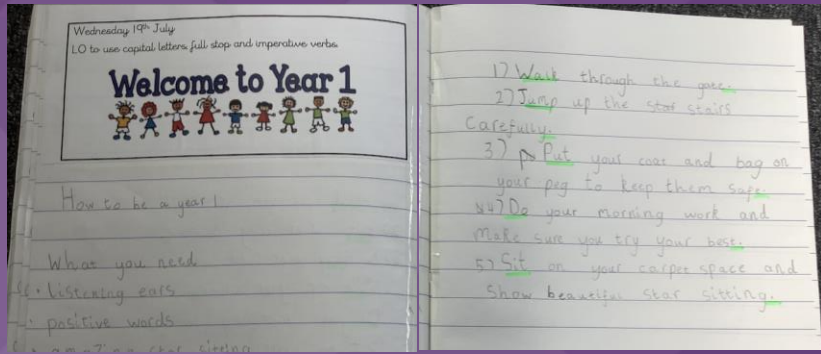 Wednesday 19th July
LO to use capital letters, full stop and imperative verbs.
Welcome to Year 1
How to be a year 1
What you need
• Listening ears
• positive words
• amazing star sitting
1) Walk through the gate.
2) Jump up the star stairs
Carefully.
3) Put your coat and bag on
your peg to keep them safe.
4) Do your morning work and
Make sure you try your best.
5) Sit on your carpet space and
Show beautiful star sitting.